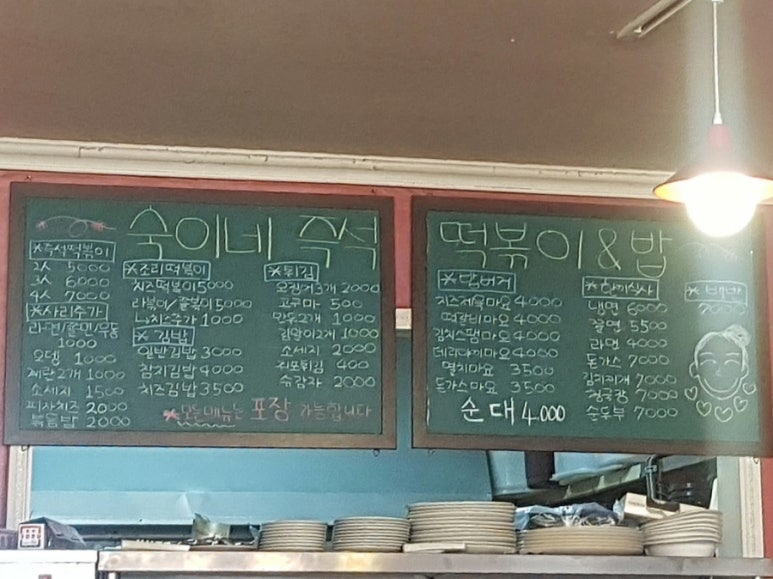 숙이네 즉석
*즉석떡볶이
2人 5000
3人 6000
4人 7000
*사리추가
라면/쫄면/우동
1000
오뎅 1000
계란2개 1000
소세지 1500
피자치즈 2000
볶음밥 2000
*조리떡볶이
치즈떡볶이 5000
라볶이/쫄볶이 5000
ㄴ치즈추가 1000
*김밥
일반김밥 3000
참치김밥 4000
치즈김밥 3500
*튀김
오징어3개 2000
고구마 500
만두2개 1000
김말이2개 1000
소세지 2000
쥐포튀김 400
슈감자 2000
*모든메뉴는 포장 가능합니다
떡볶이&밥
*밥버거
치즈제육마요 4000
떡갈비마요 4000
김치스팸마요 4000
데리야끼마요 4000
멸치마요 3500
돈가스마요 3500
순대 4.000
*한끼식사
냉면 6000
쫄면 5500
라면 4000
돈가스 7000
김치찌개 7000
청국장 7000
순두부 7000
*백반
7000